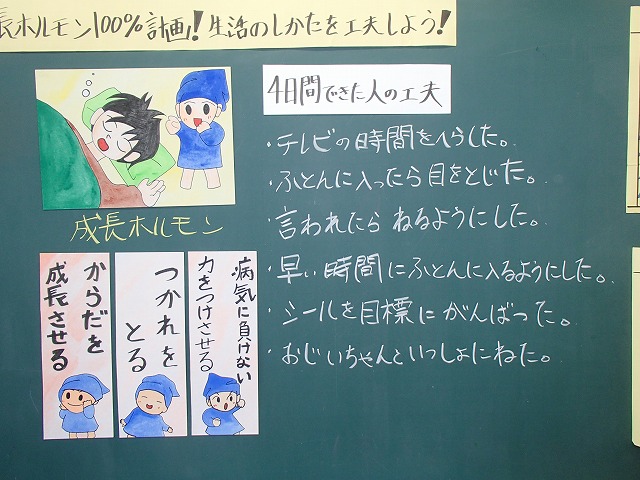 長ホルモン100%計画!生活のしかたを工夫しよう!
4日間できた人の工夫
・テレビの時間をへらした。
・ふとんに入ったら目をとじた。
・言われたらねるようにした。
・早い時間にふとんに入るようにした。
・シールを目標にがんばった。
・おじいちゃんといっしょにねた。
成長ホルモン
病気に負けない
力をつけさせる
つかれを
とる
からだを
成長させる